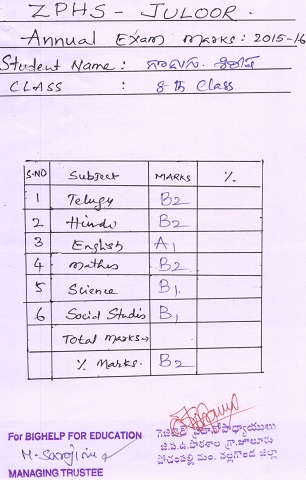 ZPHS - JULOOR.
Annual Exam marks: 2015-16
Student Name :
CLASS : 8th Class
S.NO Subject MARKS %
1 Telugu B2
2 Hindi B2
3 English A1
4 Mathes B2
5 Science B1
6 Social Studis B1
Total marks→
% Marks. B2
For BIGHELP FOR EDUCATION
MANAGING TRUSTEE
గెజిటెడ్ ప్రధానోపాధ్యాయులు
జి.ప.ఉ.పాఠశాల గ్రా.జూలూరు
పోచంపల్లి మం. నల్లగొండ జిల్లా